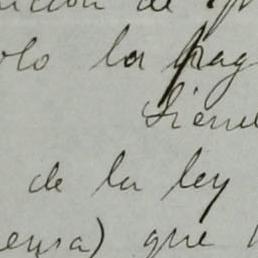 de
olo la pag
Siene
de la ley
ensa) que